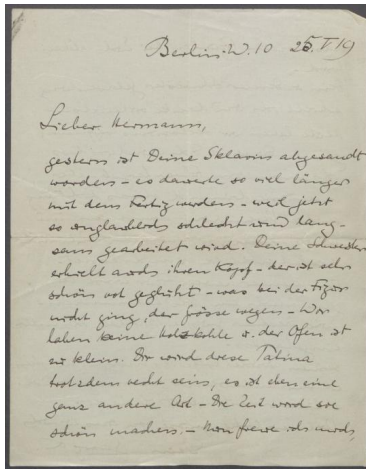 Berlin. W. 10 25. V 19
Lieber Hermann,
gestern ist Deine Sklavin abgesandt
worden - es dauerte so viel länger
mit dem Fertigwerden - weil jetzt
so unglaublich schlecht und lang-
sam gearbeitet wird. Deine Schwester
erhielt auch ihren Kopf - der ist sehr
schön rot geglüht - was bei der Figur
nicht ging, der Grösse wegen - Wir
haben keine Holzkohle u. der Ofen ist
zu klein. Dir wird diese Patina
trotzdem recht sein, es ist eben eine
ganz andere Art - Die Zeit wird sie
schön machen. - Nun freue ich mich,